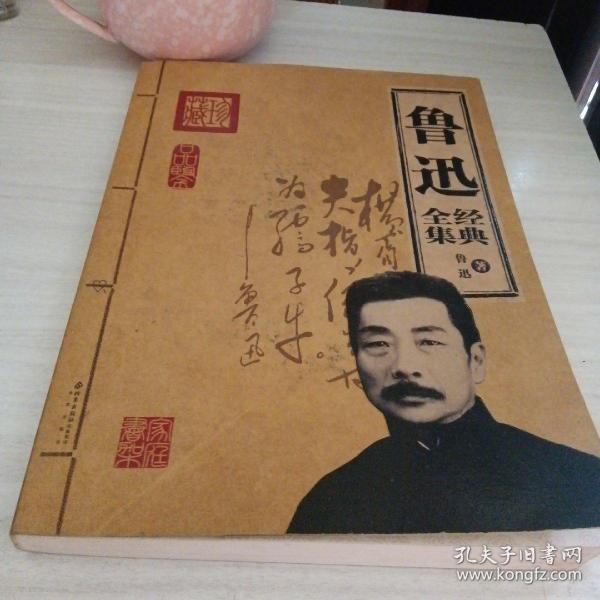 鲁迅
经典
全集
鲁迅 著
珍藏
品鉴
横眉
夫指
为孺子牛
鲁迅
家庭
书架
孔夫子旧书网
www.kongfz.com